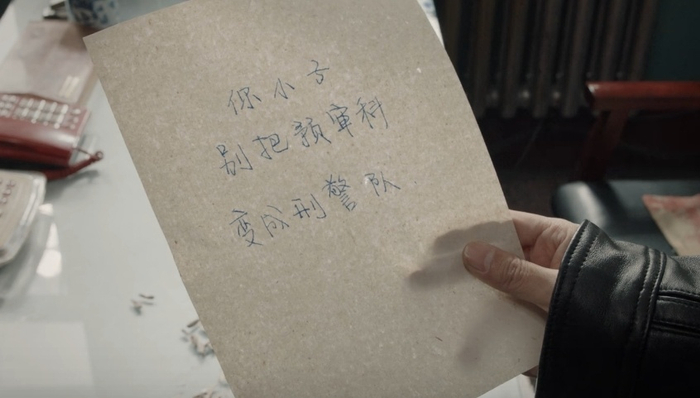 你小子
别把预审科
变成刑警队